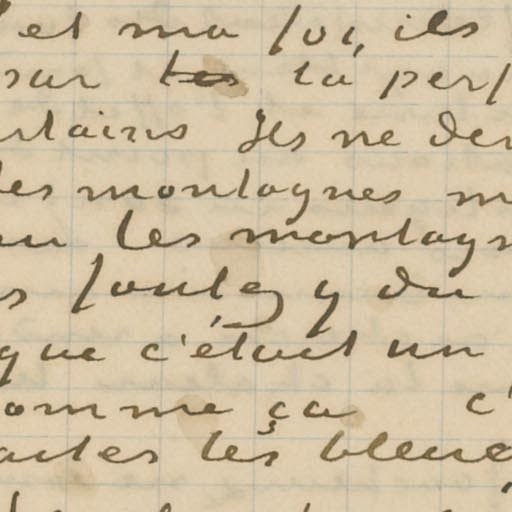 et ma foi, ils
sur les la perf
rtains Ils ne der
les montagnes m
ou les montagn
s foutez y du
que c'était un
omme ça c'
autes les bleue